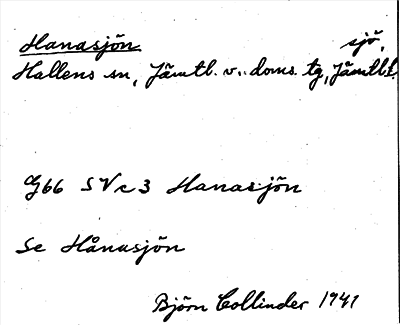 Hanasjön sjö,
Hallens sn, Jämtl. v. doms. tg, Jämtl. l.
G66 SV c 3 Hanasjön
Se Hånasjön
Björn Collinder 1941